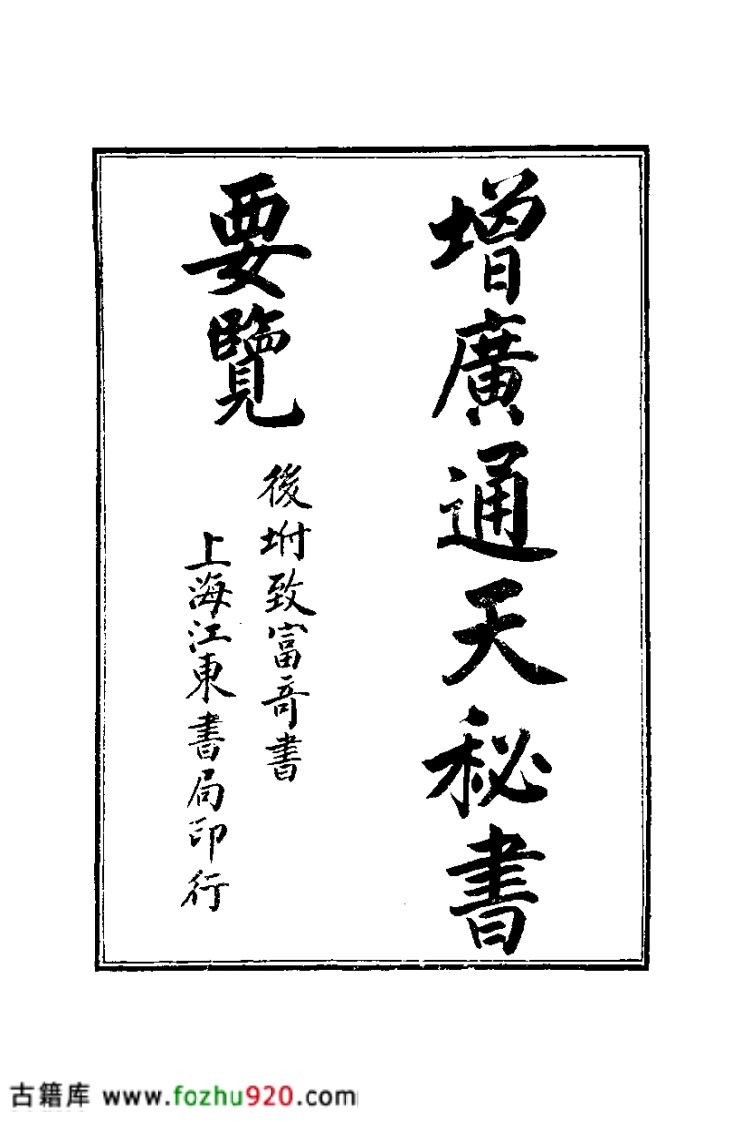 增廣通天秘書
要覽
後坿致富奇書
上海江東書局印行
古籍库 www.fozhu920.com